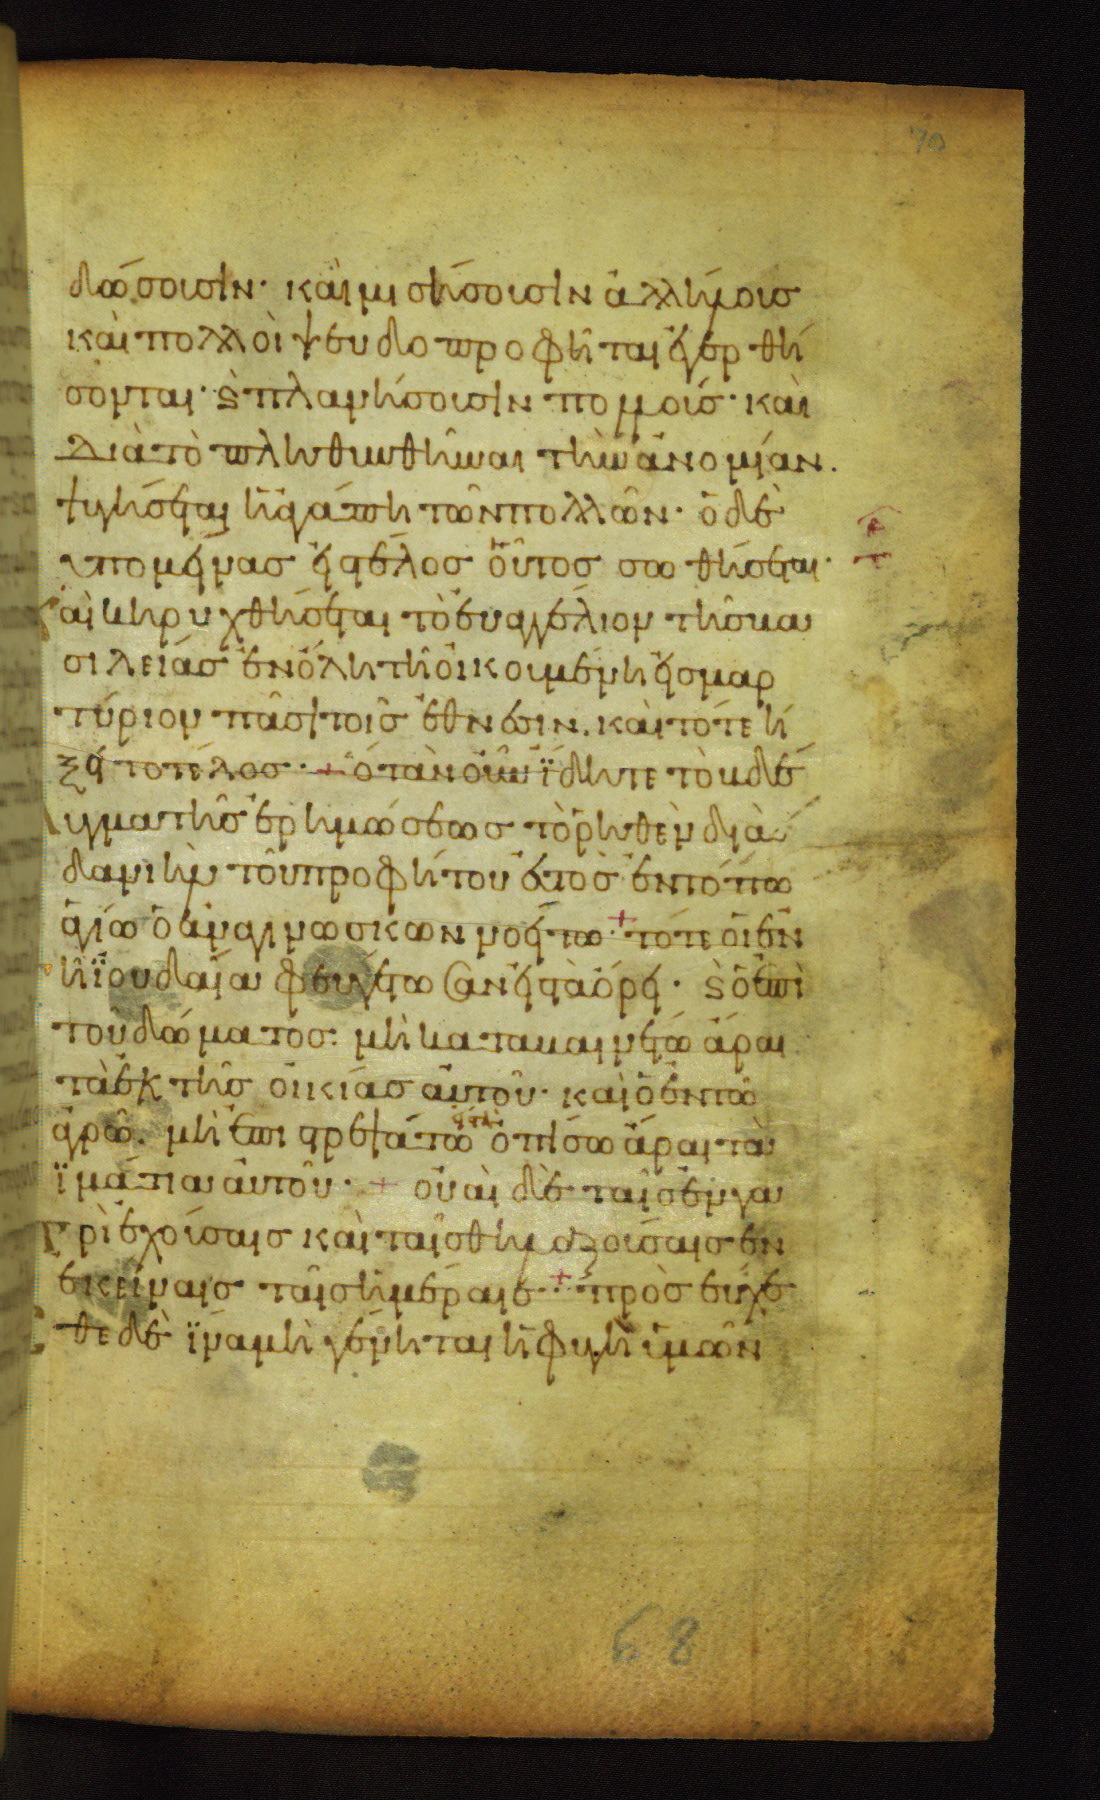 70
δώσουσιν· καὶ μισήσουσιν ἀλλήλους
καὶ πολλοὶ ψευδοπροφῆται ἐγερθή
σονται· ϗ πλανήσουσιν πολλούς· καὶ
διὰ τὸ πληθυνθῆναι τὴν ἀνομίαν.
ψυγήσεται ἡ ἀγάπη τῶν πολλῶν· ὁ δὲ
ὑπομείνας εἰς τέλος οὗτος σωθήσεται·
Καὶ κηρυχθήσεται τὸ εὐαγγέλιον τῆς βα
σιλείας ἐν ὅλη τῆ οἰκουμένη εἰς μαρ
τύριον πᾶσι τοῖς ἔθνεσιν. καὶ τότε ἥ
ξει τὸ τέλος· + ὅταν οὖν ἴδητε τὸ βδέ
λυγμα τῆς ἐρημώσεως τὸ ῥηθὲν διὰ
δανιὴλ τοῦ προφήτου ἑστὸς ἐν τόπω
ἁγίω ὁ ἀναγινώσκων νοείτω· + τότε οἱ ἐν
τῆ ἰουδαία φευγέτωσαν εἰς τὰ ὄρη· ϗ ὁ ἐπὶ
τοῦ δώματος· μὴ καταβαινέτω ἆραι
τὰ ἐκ τῆς οἰκίας αὐτοῦ· καὶ ὁ ἐν τῶ
ἀγρῶ· μὴ ἐπιστρεψάτω ὀπίσω ἆραι τὰ
ἱμάτια αὐτοῦ· + οὐαὶ δὲ ταῖς ἐν γα
στρὶ ἐχούσαις καὶ ταῖς θηλαζούσαις ἐν
ἐκείναις ταῖς ἡμέραις· + προσεύχε
σθε δὲ ἵνα μὴ γένηται ἡ φυγὴ ὑμῶν
68